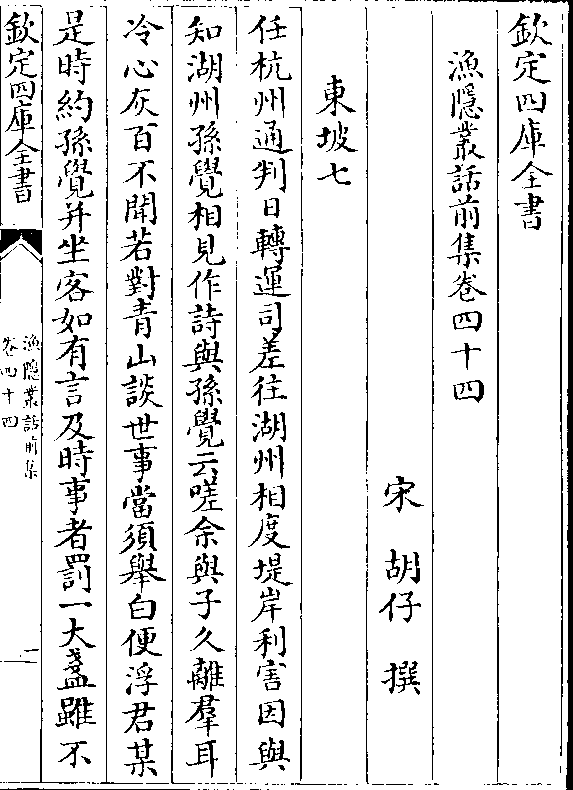 欽定四庫全書
漁隱叢話前集卷四十四
宋 胡仔 撰
東坡七
任杭州通判日轉運司差往湖州相度堤岸利害因與
知湖州孫覺相見作詩與孫覺云嗟余與子久離羣耳
冷心灰百不聞若對青山談世事當須舉白便浮君某
是時約孫覺并坐客如有言及時事者罰一大盞雖不
欽定四庫全書
漁隱叢話前集
卷四十四
一